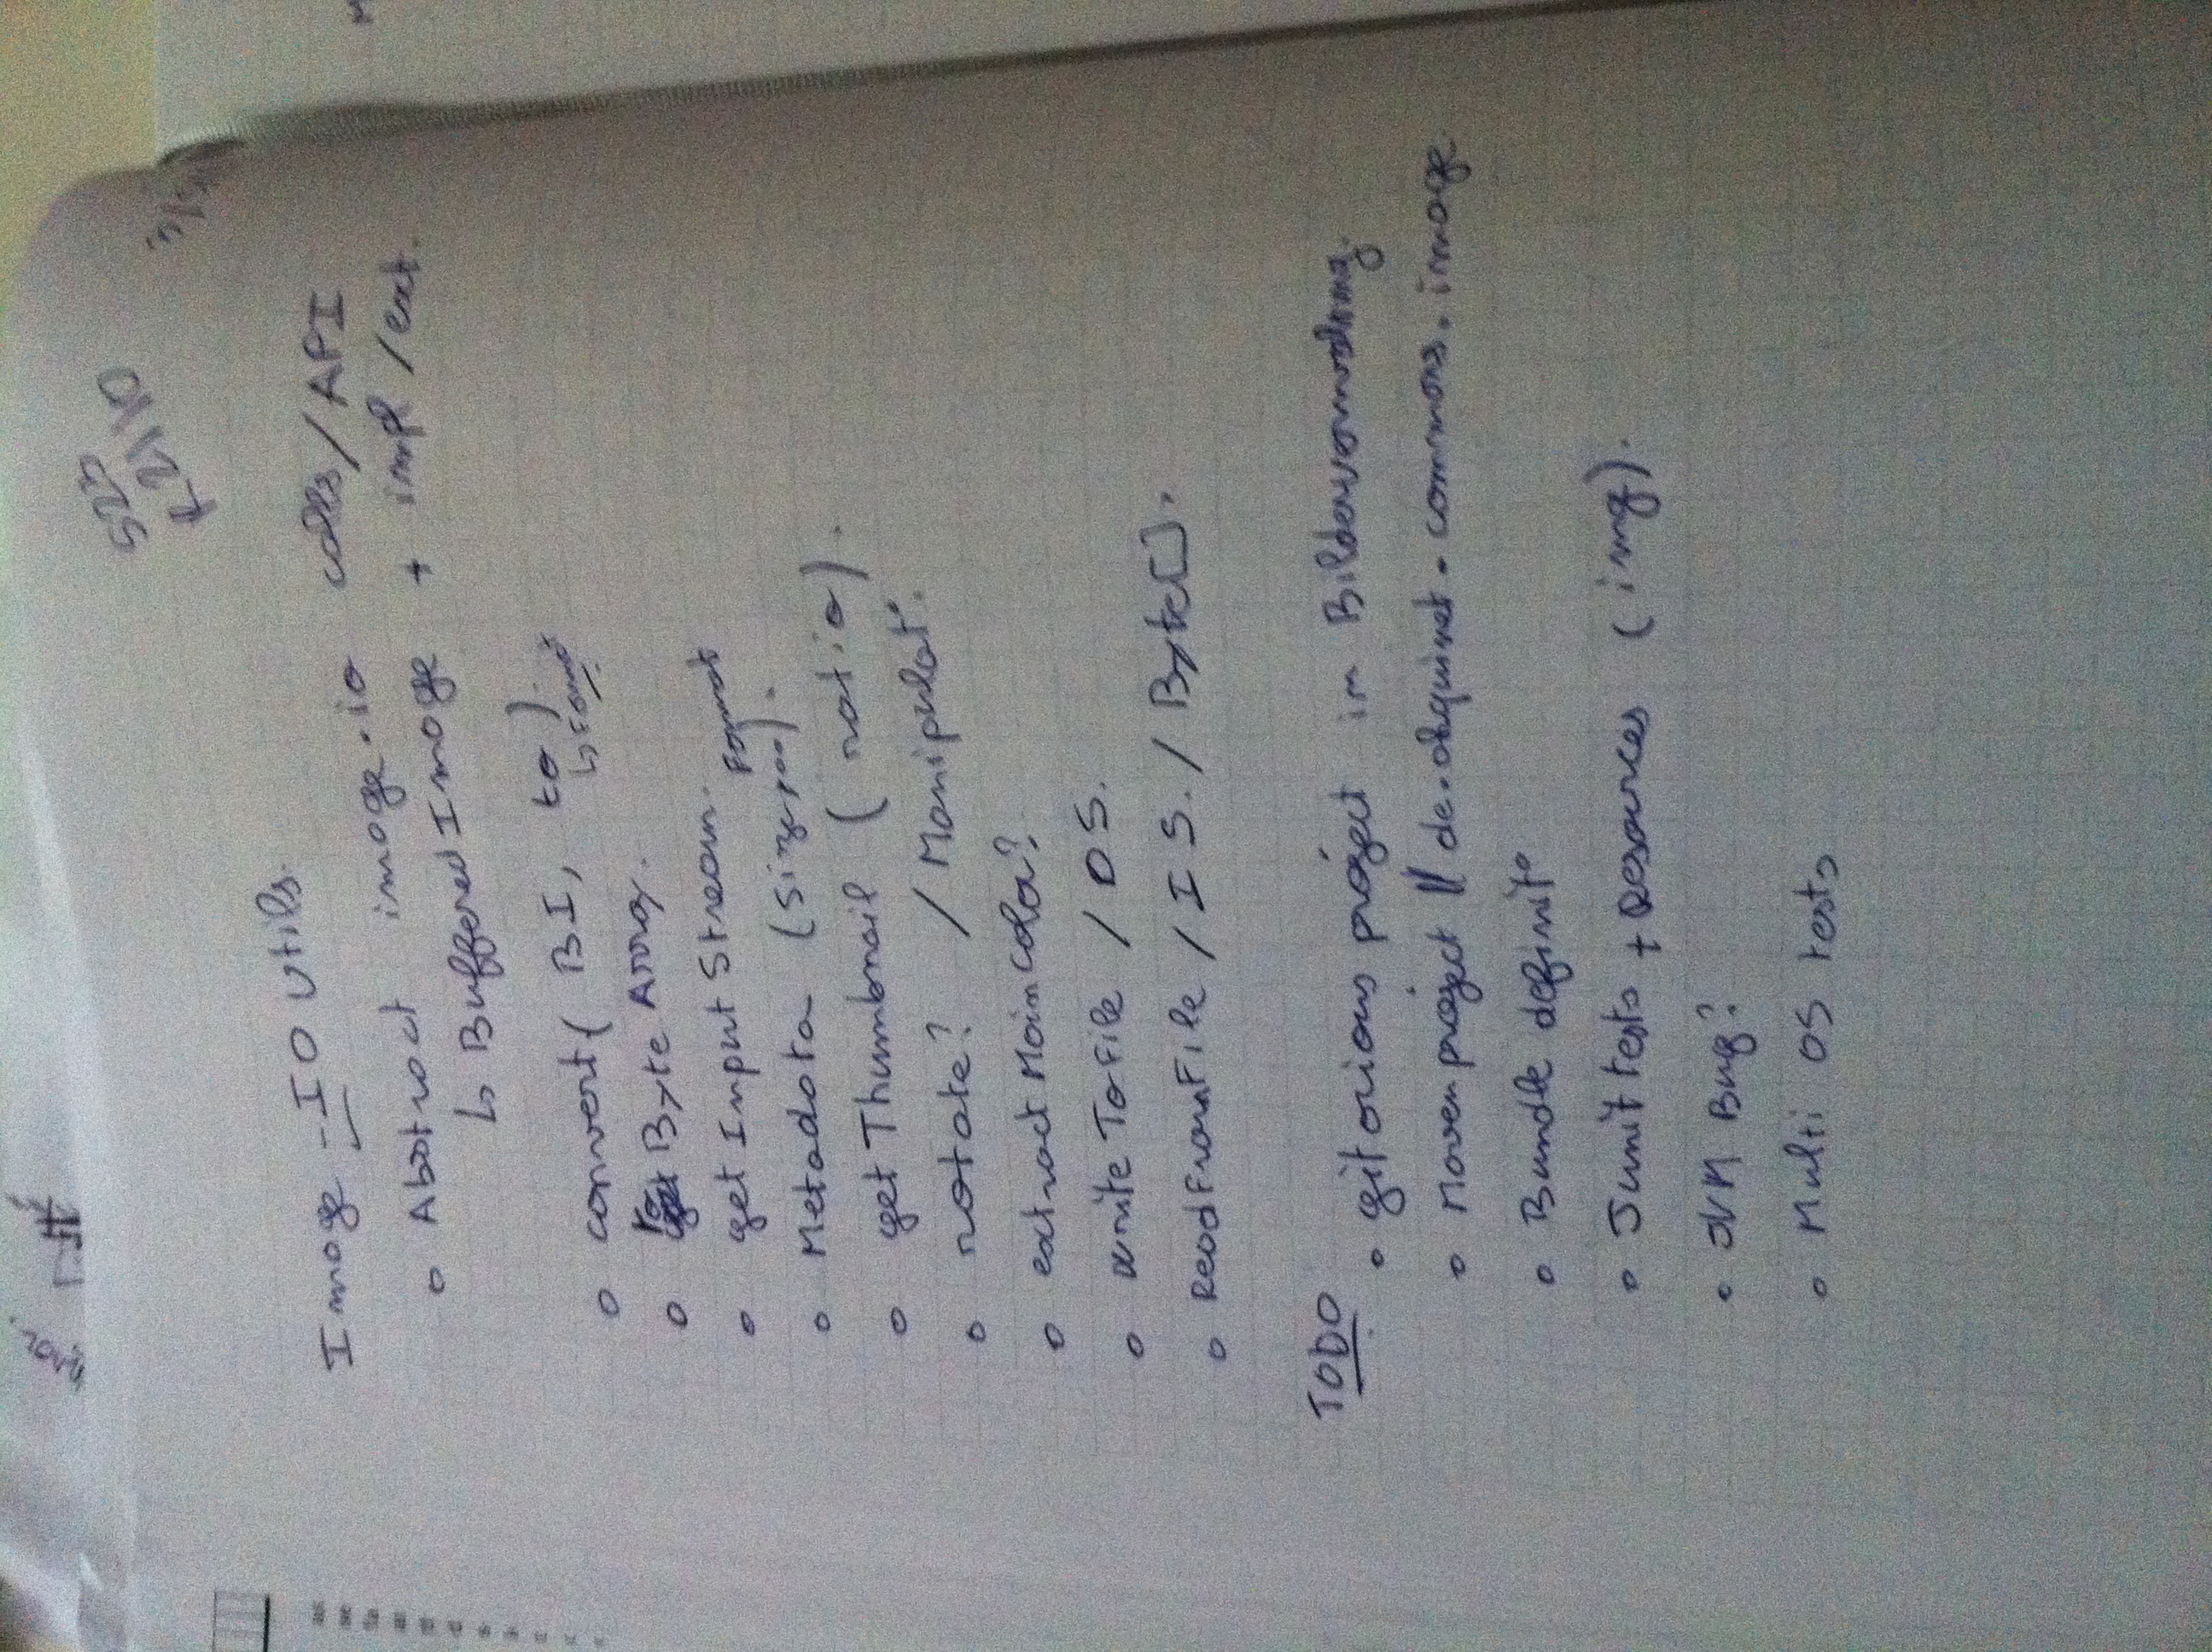 523
R2110
Image-IO Utils.
o Abstract image.io calls/API
↳ BufferedImage + impl/ext.
o convert( BI, to ).
↳ Format
o to Byte Array.
o get Input Stream.
Format
o Metadata (Size, ...).
o get Thumbnail ( ratio ).
o rotate? / Manipulat°.
o extract MainColor?
o write ToFile / OS.
o ReadFromFile / IS. / Byte[].
TODO
o gitorious project in Bilderverwaltung.
o Maven project || de.akquinet.commons.image
o Bundle definit°
o Junit tests + Resources (img).
o JVM Bug?
o Multi OS tests